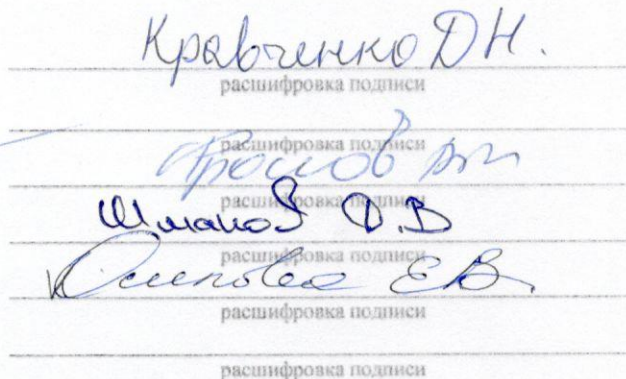 Кравченко Д Н.
расшифровка подписи
расшифровка подписи
расшифровка подписи
Шмаков Д.В
расшифровка подписи
Осипова Е В.
расшифровка подписи
расшифровка подписи